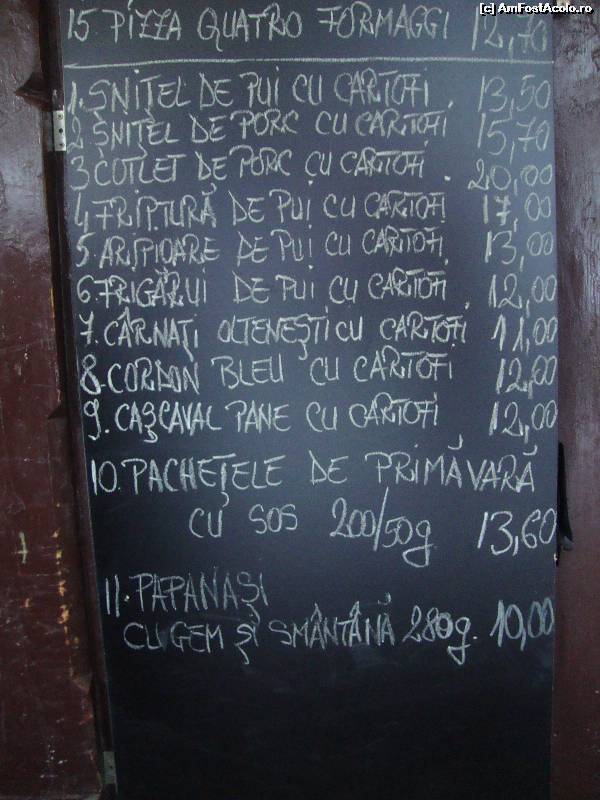 [c] AmFostAcolo.ro
15. PIZZA QUATRO FORMAGGI 12,70
1. ȘNIȚEL DE PUI CU CARTOFI. 13,50
2. ȘNIȚEL DE PORC CU CARTOFI. 15,70
3 COTLET DE PORC CU CARTOFI. 20,00
4. FRIPTURĂ DE PUI CU CARTOFI 17,00
5. ARIPIOARE DE PUI CU CARTOFI. 13,00
6. FRIGĂRUI DE PUI CU CARTOFI. 12,00
7. CÂRNAȚI OLTENEȘTI CU CARTOFI 11,00
8. CORDON BLEU CU CARTOFI 12,00
9. CAȘCAVAL PANE CU CARTOFI 12,00
10. PACHEȚELE DE PRIMĂVARĂ
CU SOS 200/50g 13,60
11. PAPANAȘI
CU GEM ȘI SMÂNTÂNĂ 280g. 10,00